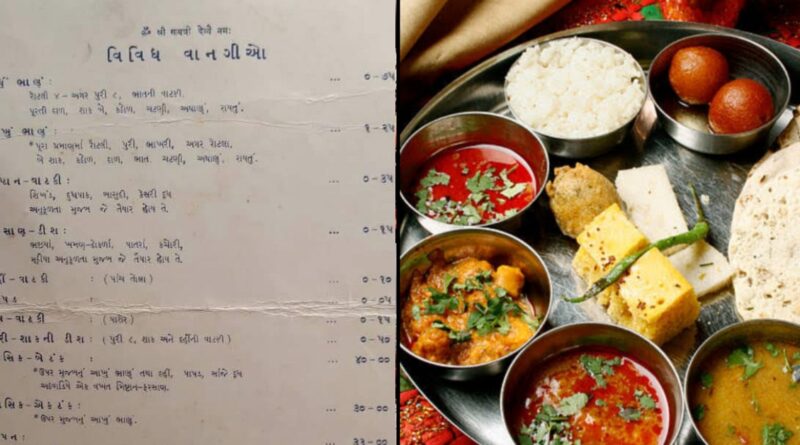 ૐ શ્રી ગાયત્રી દેવ્યૈ નમઃ
વિવિધ વાનગીઓ
ભાણું: ... ૦-૭૫
રોટલી ૪- અગર પુરી ૮, ભાતની વાટકી.
પૂરતી દાળ, શાક બે, કઠોળ, ચટણી, અથાણું, રાયતું.
ભાણું: ... ૧-૨૫
*પૂરા પ્રમાણમાં રોટલી, પુરી, ભાખરી, અગર રોટલા.
બે શાક, કઠોળ, દાળ, ભાત ચટણી, અથાણું, રાયતું.
વાટકી: ... ૦-૩૫
શિખંડ, દુધપાક, બાસુદી, કેસરી દૂધ
અનુકૂળતા મુજબ જે તૈયાર હોય તે.
ડીશ: ... ૦-૧૫
ભજીયા, ખમણ-ઢોકળાં, પાતરાં, કચોરી,
અનુકૂળતા મુજબ જે તૈયાર હોય તે.
વાટકી: (પાંચ તોલા) ... ૦-૧૦
... ૦-૦૫
વાટકી: (પાશેર) ... ૦-૧૫
શાકની ડીશ: (પુરી ૮, શાક અને દહીંની વાટકી) ... ૦-૫૦
... ૪૦-૦૦
*ઉપર મુજબનું આખું ભાણું તથા દહીં, પાપડ, સાંજે દૂધ
અઠવાડિયે એક વખત મિષ્ટાન-ફરસાણ.
... ૩૦-૦૦
*ઉપર મુજબનું આખું ભાણું.